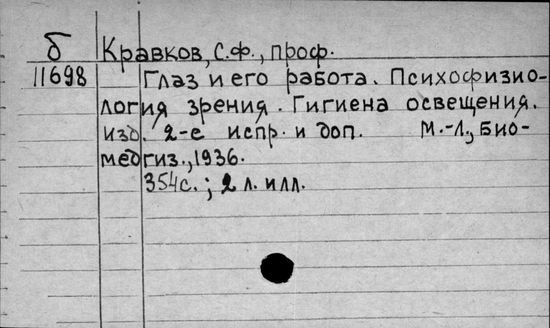 б Кравков, С.Ф., проф.
11698 Глаз и его работа. Психофизио-
логия зрения. Гигиена освещения.
изд. 2-е испр. и доп. М.-Л., Био-
медгиз., 1936.
354с.; 2 л. илл.